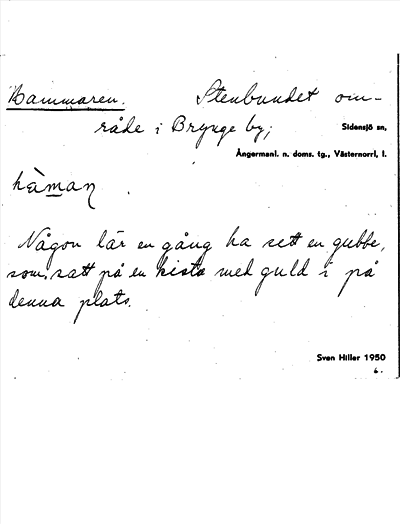 Kammaren. Stenbundet om-
råde i Brynge by; Sidensjö sn,
Ångermanl. n. doms. tg., Västernorrl. l.
Någon lär en gång ha sett en gubbe,
som satt på en kista med guld i på
denna plats.
Sven Hiller 1950
6.